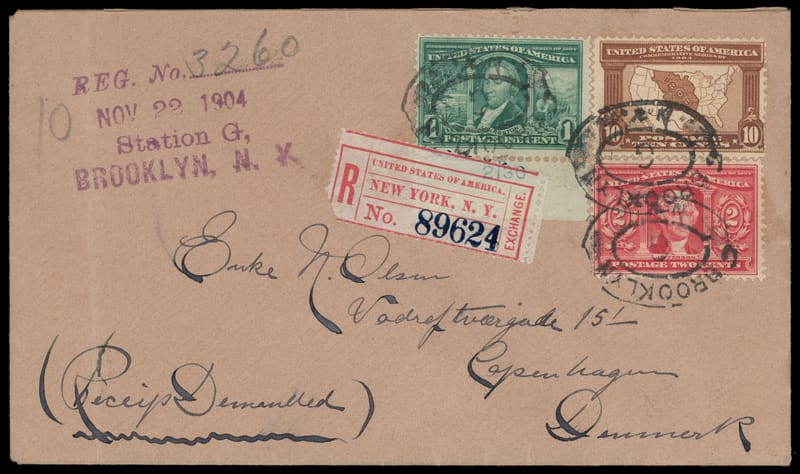 REG. No. 3260
10
NOV 22 1904
Station G,
BROOKLYN, N. Y
UNITED STATES OF AMERICA
SERIES OF 1904
1 1
POSTAGE ONE CENT
UNITED STATES OF AMERICA
COMMEMORATIVE SERIES OF 1904
10 10
TEN CENTS
UNITED STATES OF AMERICA
2 2
POSTAGE TWO CENTS
BROOKLYN
2136
R
UNITED STATES OF AMERICA.
NEW YORK, N. Y.
No. 89624
EXCHANGE.
Enke N. Olsen
Vodroftværgade 15/-
Copenhagen
Denmark
(Receip Demanded)